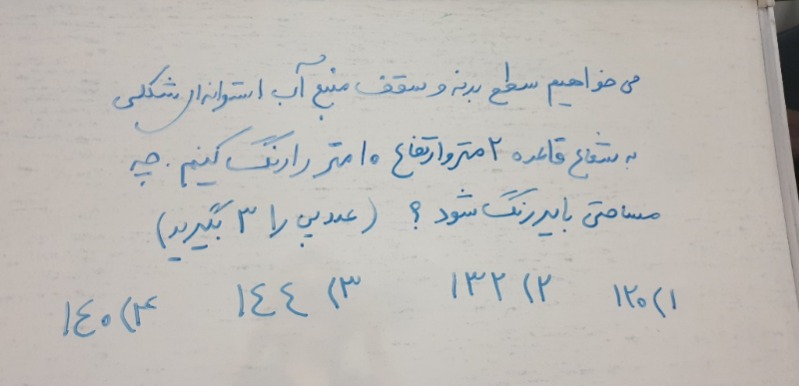 می خواهیم سطح بدنه و سقف منبع آب استوانه ای شکلی
به شعاع قاعده ۲ متر و ارتفاع ۱۰ متر را رنگ کنیم. چه
مساحتی باید رنگ شود؟ (عدد پی را ۳ بگیرید)
۱) ۱۲۰ ۲) ۱۳۲ ۳) ۱٤٤ ۴) ۱٤۰